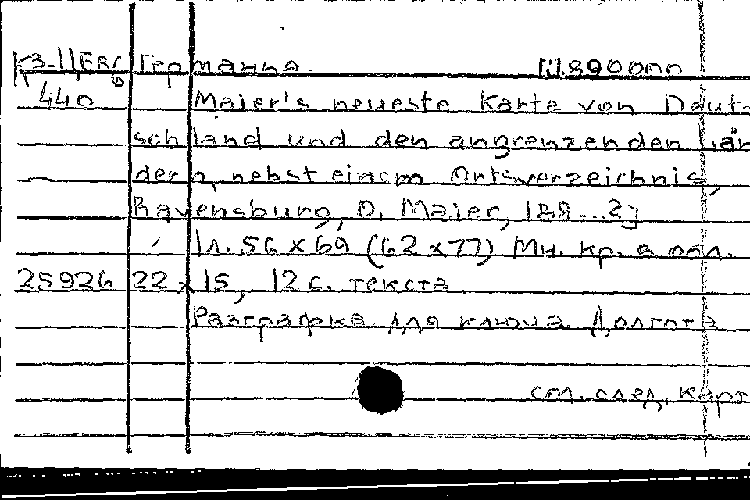 К3-11 Германия. 1:1.890000
440 Maier's neueste Karte von Deut-
schland und den angrenzenden Län
dern, nebst einem Ortsverzeichnis,
Ravensburg, O. Maier, 188...?]
1л. 56 x 69 (62 x 77) Мн. кр. в обл.
25926 22 x 15, 12 с. текста
Разграфка для ключа. Долгота
см. след. карт